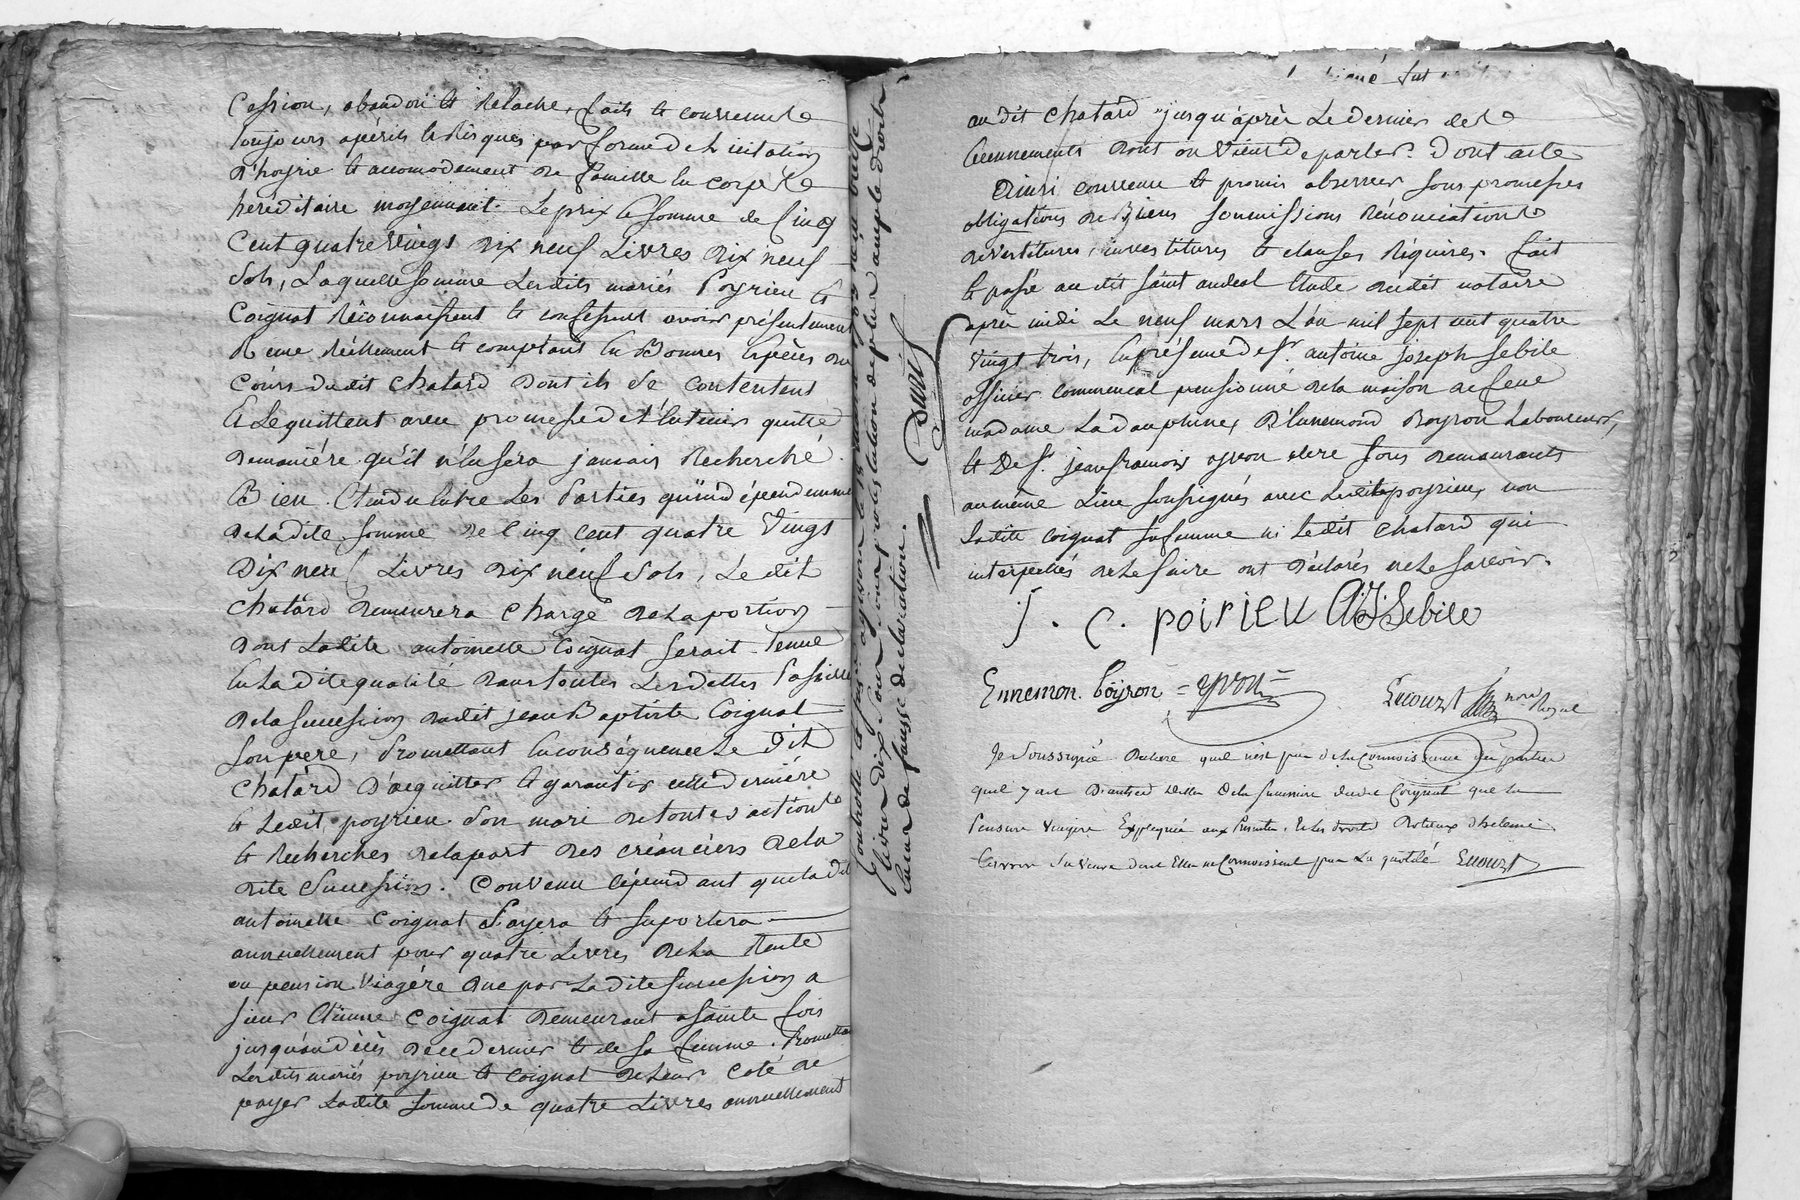 Cession, abandon et Relache, faits et convenus
toujours apérils et Risques par forme de Licitation
D'hoyrie et accomodement de famille en corps
hereditaire moyennant Le prix et somme de Cinq
Cent quatre Vings dix neuf Livres dix neuf
Sols, Laquelle somme Lesdits mariés Poyrieu et
Coignat Réconnaissent et confessent avoir présentement
Réellement et comptant en Bonnes Espèces du
Cours dudit Chatard dont ils Se Contentent
et Le quittent avec promesse de L'entenir quitte
demaniére qu'il n'en sera jamais Recherché.
Bien Entendu entre Les Parties qu'indépendamment
De La dite Somme De Cinq Cent quatre Vings
Dix neuf Livres dix neuf Sols, Le dit
Chatard demeurera chargé de La portion
dont Ladite antoinette Coignat serait tenue
en La dite qualité dans toutes Les dettes Passives
de La succession dudit jean Baptiste Coignat
Son père, Promettant en conséquence Le Dit
Chatard D'acquitter et garantir cette dernière
et Ledit poyrieu Son mari de toutes actions
et Recherches de la part des créanciers de la
dite Succession. Convenu cépendant que la dite
antoinette Coignat Payera et suportera
annuellement pour quatre Livres de La Rente
ou pension Viagére due par La dite Succession a
Sieur Etienne Coignat demeurant a sainte fois
jusqu'au décès de ce dernier et de sa femme. Promettant
Lesdits mariés poyrieu et Coignat de Leur Coté de
payer Ladite Somme de quatre Livres annuellement
livres dix sous sauf restitution de plus ample droit
en cas de fausse déclaration.
au dit Chatard jusqu'àprès Le dernier des
Evennements dont on Vient de parler. Dont acte
Ainsi convenu et promis observer sous promesses
obligations de Biens soumissions Rénonciations
devestitures, investitures et clauses Réquises. fait
et passé au dit saint andeol Etude dudit notaire
après midi Le neuf mars L'an mil sept cent quatre
vingt trois, en présence de Sr. antoine joseph Sebile
officier commencal pensionné de la maison de feue
madame La Dauphine, D'Ennemond Boyron Laboureur,
et De Sr. jean françois yvon clerc tous demeurants
au même Lieu soussignés avec Ledit poyrieu, non
Ladite Coignat sa femme ni Ledit Chatard qui
interpellés de Le faire ont Déclarés ne Le savoir.
J. C. poirieu AJ Sebile
Ennemon. Boyron = yvon = Royal
Je Soussigné Declare quil n'est pas de La Connoissance des parties
quil y ait D'autres dettes de la succession dudit Coignat que La
Pension Viagere Expliquée aux Presentes,
Sa Veuve dont Elles ne Connoissent pas La quotité